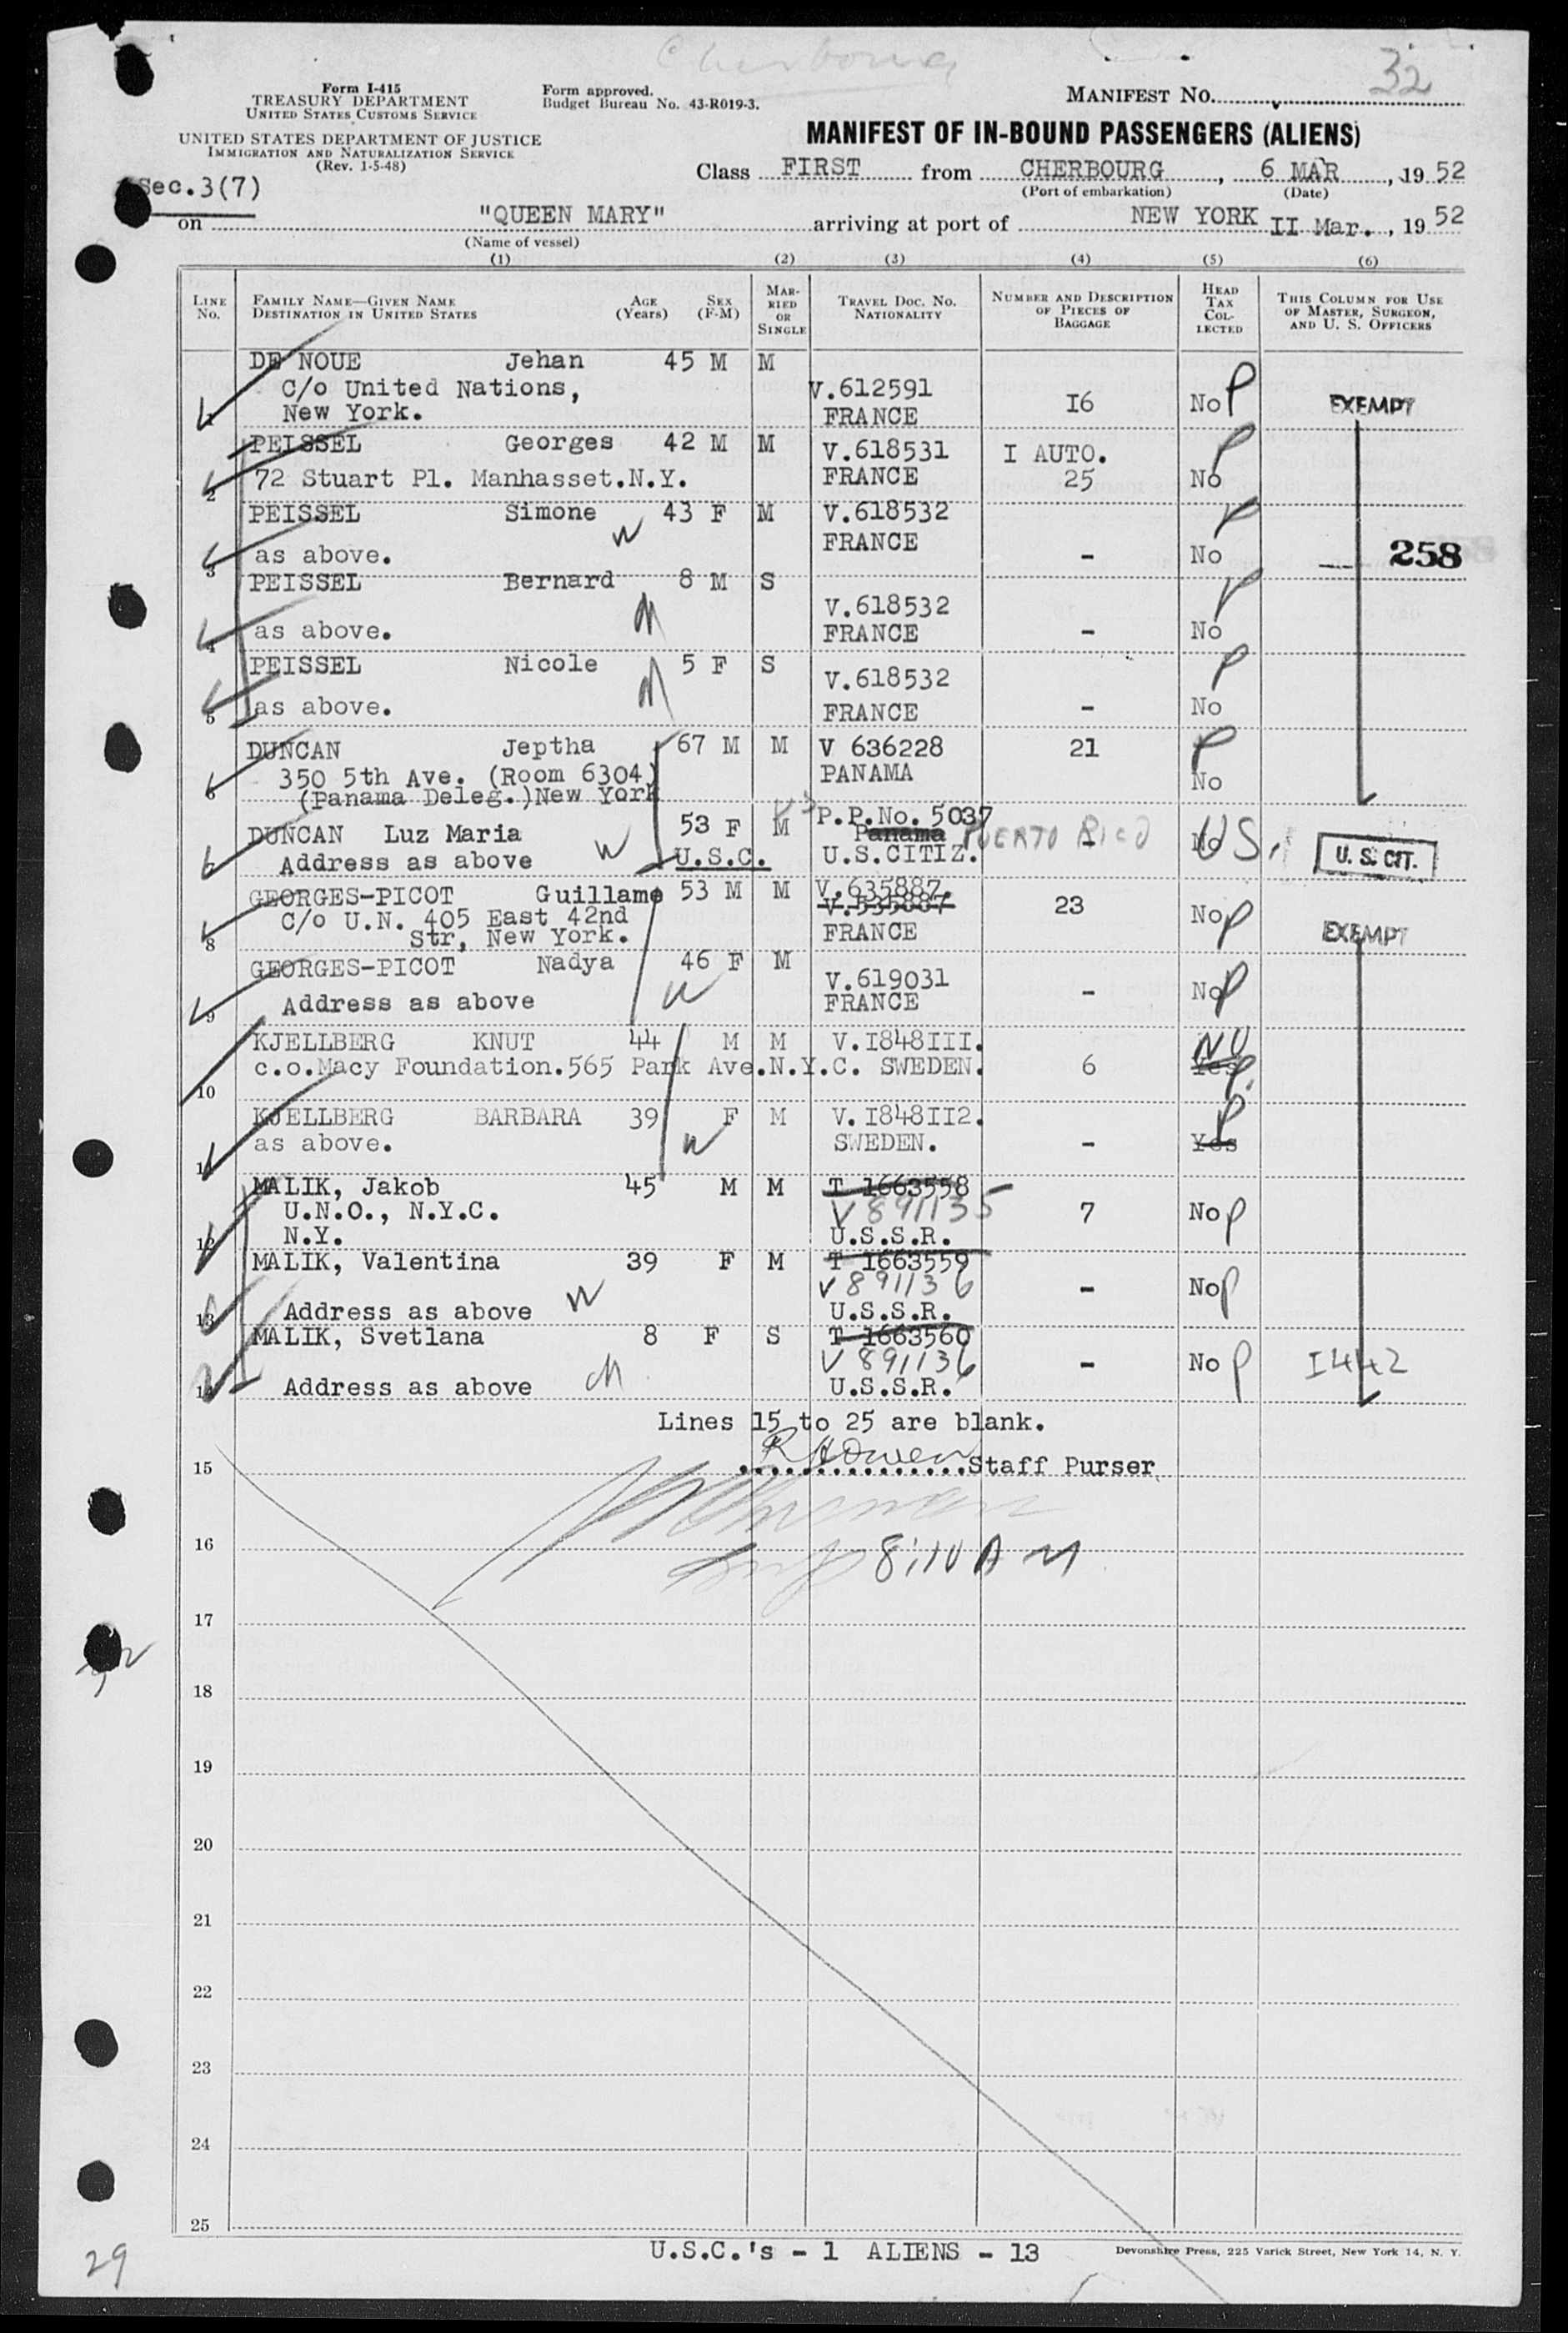 Cherbourg
32
Form I-415
TREASURY DEPARTMENT
UNITED STATES CUSTOMS SERVICE
UNITED STATES DEPARTMENT OF JUSTICE
IMMIGRATION AND NATURALIZATION SERVICE
(Rev. 1-5-48)
Form approved.
Budget Bureau No. 43-R019-3.
MANIFEST NO.
MANIFEST OF IN-BOUND PASSENGERS (ALIENS)
Class FIRST from CHERBOURG, 6 MAR, 19 52
(Port of embarkation) (Date)
Sec.3(7)
on "QUEEN MARY" arriving at port of NEW YORK II Mar., 19 52
(Name of vessel)
(1) (2) (3) (4) (5) (6)
LINE NO. FAMILY NAME—GIVEN NAME DESTINATION IN UNITED STATES AGE (Years) SEX (F-M) MARRIED OR SINGLE TRAVEL DOC. NO. NATIONALITY NUMBER AND DESCRIPTION OF PIECES OF BAGGAGE HEAD TAX COLLECTED THIS COLUMN FOR USE OF MASTER, SURGEON, AND U. S. OFFICERS
DE NOUE Jehan 45 M M
C/o United Nations, V.612591
New York. FRANCE I6 No P EXEMPT
PEISSEL Georges 42 M M V.618531 I AUTO. P
2 72 Stuart Pl. Manhasset.N.Y. FRANCE 25 No
PEISSEL Simone 43 F M V.618532 P
W FRANCE
3 as above. - No 258
PEISSEL Bernard 8 M S
V.618532 P
4 as above. FRANCE - No
PEISSEL Nicole 5 F S V.618532 P
5 as above. FRANCE - No
DUNCAN Jeptha 67 M M V 636228 21 P
6 350 5th Ave. (Room 6304) PANAMA No
(Panama Deleg.)New York
DUNCAN Luz Maria 53 F M P.P.No. 5037
W Panama PUERTO RICO No US.
Address as above U.S.C. U.S.CITIZ. U. S. CIT.
GEORGES-PICOT Guillame 53 M M V.635887.
C/o U.N. 405 East 42nd V.535887 23 No P
8 Str, New York. FRANCE EXEMPT
GEORGES-PICOT Nadya 46 F M V.619031
9 Address as above W FRANCE - No P
KJELLBERG KNUT 44 M M V.I848III. NO
c.o.Macy Foundation.565 Park Ave.N.Y.C. SWEDEN. 6 Yes P.
10
KJELLBERG BARBARA 39 F M V.I848II2. P
11 as above. W SWEDEN. - Yes
MALIK, Jakob 45 M M T 1663558
U.N.O., N.Y.C. V 891135 7 No P
12 N.Y. U.S.S.R.
MALIK, Valentina 39 F M T 1663559
W V 891136 - No P
13 Address as above U.S.S.R.
MALIK, Svetlana 8 F S T 1663560
V 891136 - No P I442
14 Address as above U.S.S.R.
Lines 15 to 25 are blank.
R H Owen
15 Staff Purser
16 8:10 A M
17
18
19
20
21
22
23
24
25
U.S.C.'s - 1 ALIENS - 13
Devonshire Press, 225 Varick Street, New York 14, N. Y.
29